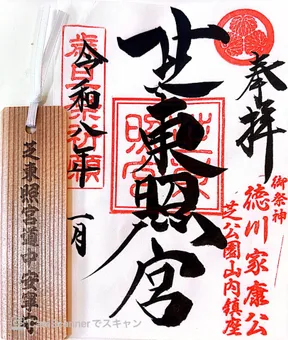 奉拝
御祭神
徳川家康公
芝公園山内鎮座
芝東照宮
令和八年
一月
芝東照宮道中安寧守
でスキャン